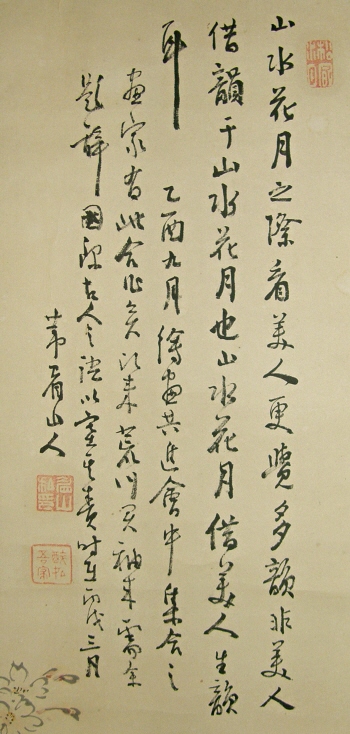 山水花月之際看美人更覺多韻非美人
借韻于山水花月也山水花月借美人生韻
耳
乙酉九月繪畫共進會中集合之
畫家有此合作矣 来荒川君袖来需余
題辭因録古人之語以塞其責時在丙戌三月
眉山人